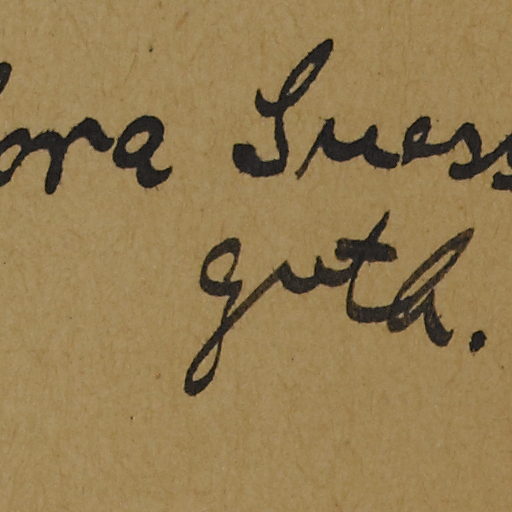 ora Suess
guth.